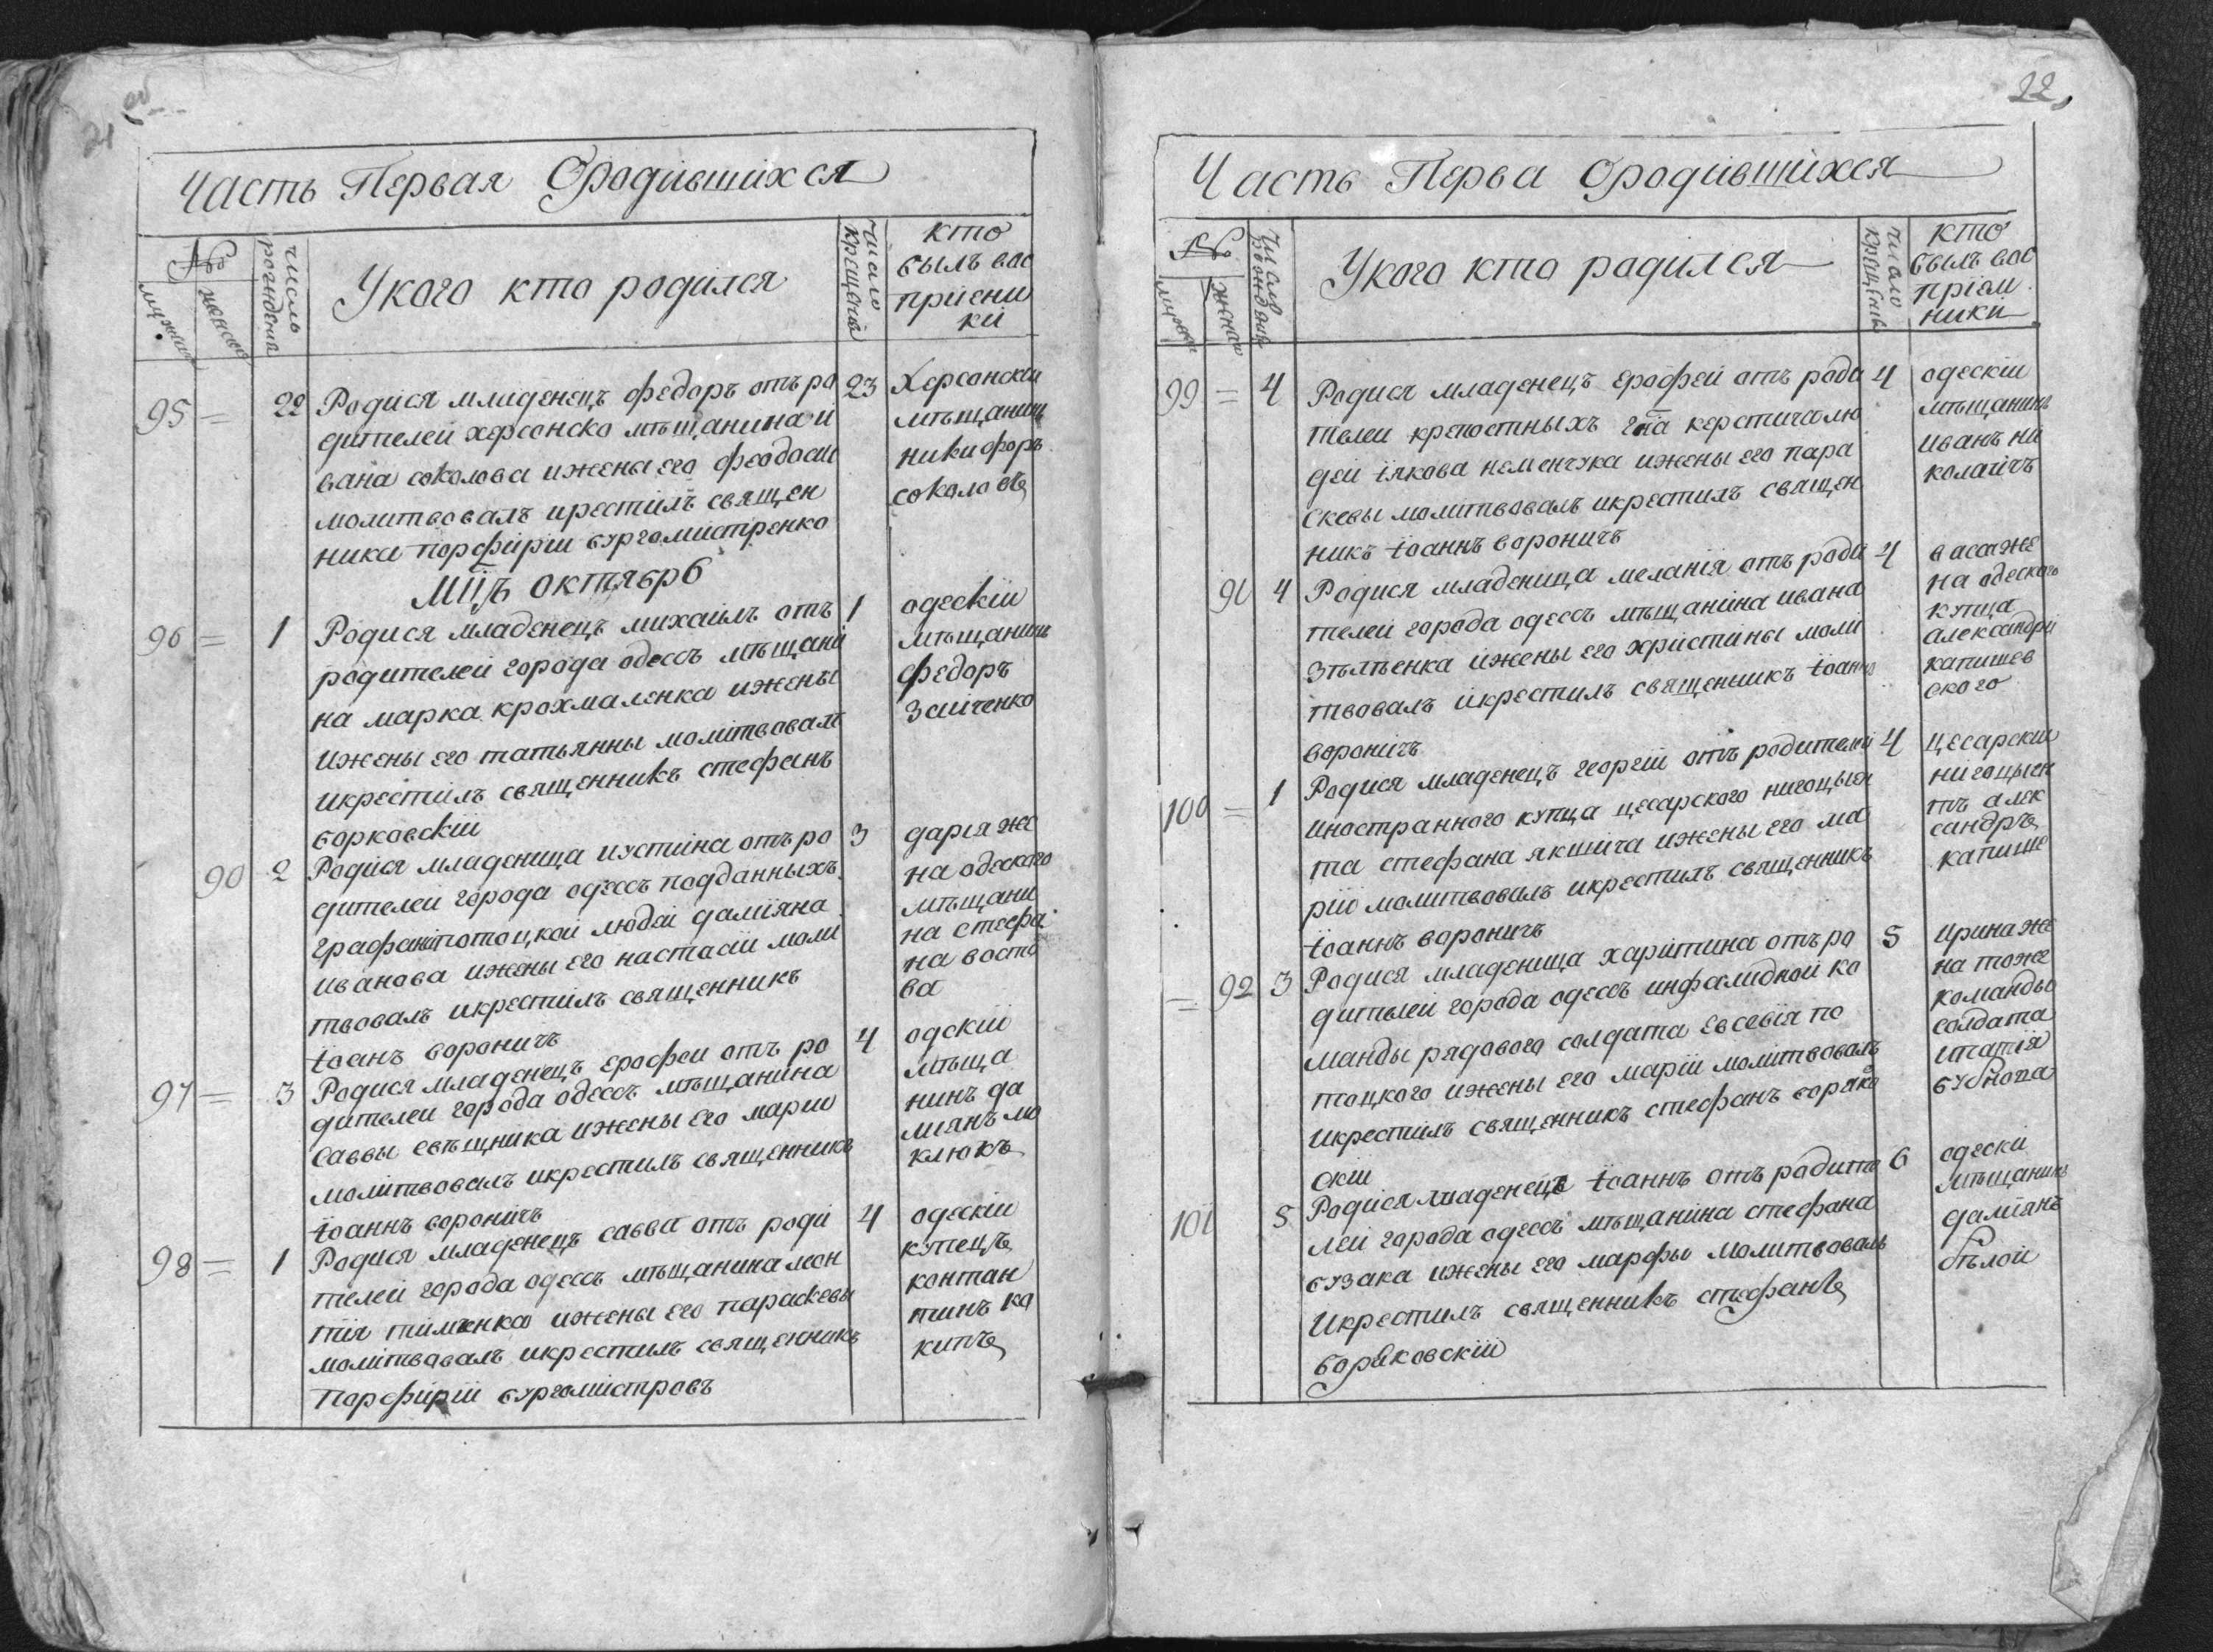 21
22
Часть Первая Ородившихся
№
мужеска
женска
число рождения
Укого кто родился
число крещения
кто
былъ вос
приємни
ки
95 = 22 Родися младенецъ федоръ отъ ро 23
дителей херсонско мѣщанина и
вана соколова ижены его феодосии
молитвовалъ икрестилъ священ
ника порфирии бургомистренко
Херсонский
мѣщанин
никифоръ
соколовъ
Мцъ октябрь
96 = 1 Родися младенецъ михаилъ отъ 1
родителей города одессъ мѣщани
на марка крохмаленка ижены
ижены его татьянны молитвовалъ
икрестилъ священникъ стефанъ
борковскій
одескій
мѣщанинъ
федоръ
Заиченко
90 2 Родися младеница иустина отъ ро 3
дителей города одессъ подданныхъ
графани потоцкой людей даміяна
иванова ижены его настасіи моли
твовалъ икрестилъ священникъ
іоанъ вороничъ
дарія же
на одескаго
мѣщани
на стефа
на восто
ва
97 = 3 Родися младенецъ ерофеи отъ ро 4
дителеи города одессъ мѣщанина
саввы свѣщника ижены его марии
молитвовалъ икрестилъ священникъ
іоаннъ вороничъ
одскій
мѣща
нинъ да
миянъ мо
клюкъ
98 = 1 Родися младенецъ савва отъ роди 4
телей города одессъ мѣщанина леон
тія тименка ижены его параскевы
молитвовалъ икрестилъ священникъ
Порфирій бургомистровъ
одескій
купецъ
контан
тинъ ка
кипъ
Часть Перва Ородившихся
№
женска
Укого кто родился
число крещены
кто
былъ вос
пріем
ники
99 = 4 Родися младенецъ ерофей отъ роди 4
телеи крепостныхъ гна керстича лю
дей іякова неменчука ижены его пара
скевы молитвовалъ икрестилъ священ
никъ іоаннъ вороничъ
одескій
мѣщанинъ
иванъ ни
колаичъ
91 4 Родися младеница меланія отъ роди 4
телеи города одессъ мѣщанина ивана
ижены его христины моли
твовалъ икрестилъ священникъ іоаннъ
вороничъ
васа же
на одескаго
купца
александри
капишев
ского
100 = 1 Родися младенецъ георгій отъ родителей 4
иностранного купца цесарского нигоцыен
та стефана якшича ижены его ма
рии молитвовалъ икрестилъ священникъ
іоаннъ вороничъ
цесарскій
нигоцыен
тъ алек
сандръ
капише
= 92 3 Родися младеница харитина отъ ро 5
дителей города одессъ инфалидной ко
манды рядового солдата евсевія по
тоцкого ижены его маріи молитвовалъ
икрестилъ священникъ стефанъ борков
скій
ирина же
на тоже
команды
солдата
игнатія
бубнопа
101 5 Родися младенецъ іоаннъ отъ родите 6
лей города одессъ мѣщанина стефана
бузака ижены его марфы молитвовалъ
Икрестилъ священникъ стефанъ
борковскій
одескі
мѣщанинъ
даміянъ
бѣлой